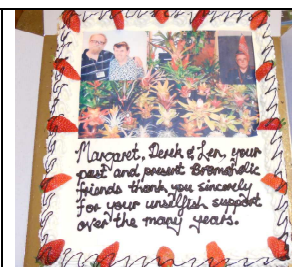 Margaret, Derek & Len, your
past and present Bromoholic
friends thank you sincerely
for your unselfish support
over the many years.